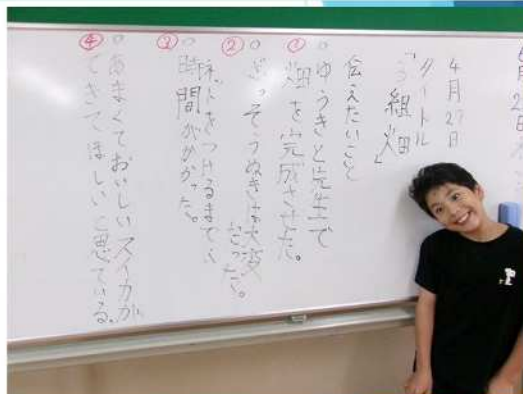 4月27日
タイトル
「3組畑」
伝えたいこと
①○ゆうきと先生で
畑を完成させた。
②○ざっそうぬきは大変
だった。
ネットをつけるまでに
③○時間がかかった。
④○あまくておいしいスイカが
できてほしいと思っている。